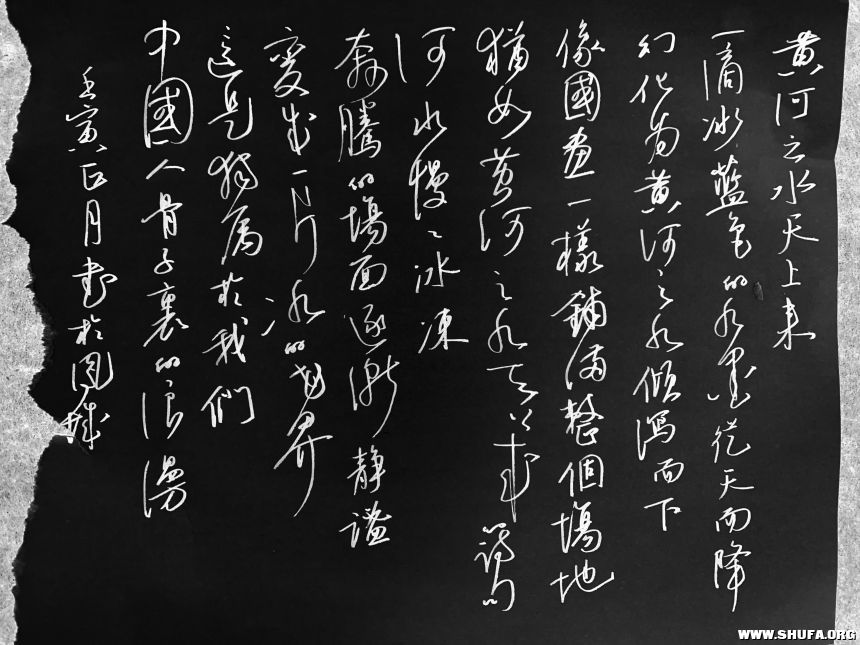 黄河之水天上来
一滴冰藍色的水墨從天而降
幻化为黄河之水傾瀉而下
像國畫一樣鋪滿整個場地
猶如黄河之水天上来詩句
河水慢慢冰凍
奔騰的場面逐漸静谧
變成一片冰的世界
這是獨属於我們
中國人骨子裏的浪漫
壬寅正月書於
WWW.SHUFA.ORG